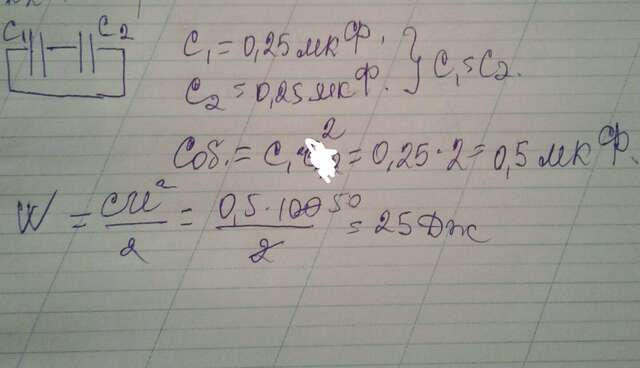 C₁ C₂
C₁ = 0,25 мкФ.
C₂ = 0,25 мкФ. } C₁ = C₂.
Cоб. = C₁ 2 = 0,25 · 2 = 0,5 мкФ.
W = cu²/2 = 0,5 · 100 50/2 = 25 Дж